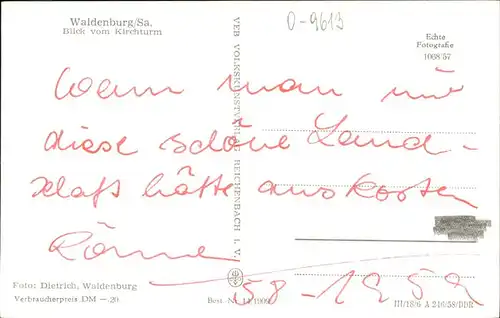 Waldenburg/Sa.
Blick vom Kirchturm
O-9613
Echte
Fotografie
1068/57
VEB VOLKSKUNSTVERLAG REICHENBACH I. V.
Wenn man nur
diese schöne Land-
schaft hätte auskosten
können
58-1959
Foto: Dietrich, Waldenburg
Verbraucherpreis DM -.20
Best. Nr. 14/1909
III/18/6 A 246/58/DDR